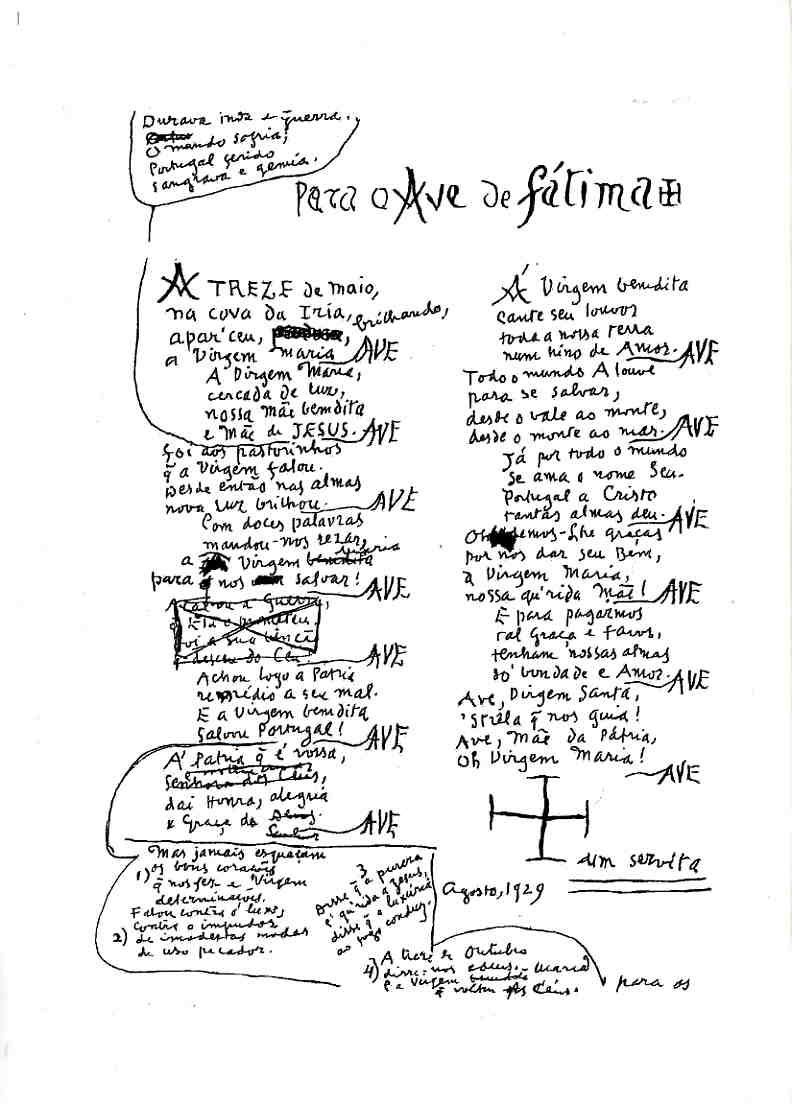 Durava inda a guerra.
O mundo sofria;
Portugal ferido
sangrava e gemia.
Para o Ave de Fátima
A TREZE de maio,
na cova da Iria,
apar'ceu, brilhando,
a Virgem Maria AVE
A Virgem Maria,
cercada de luz,
nossa Mãe bemdita
e Mãe de JESUS. AVE
Foi aos pastorinhos
q̃ a Virgem falou.
Desde então nas almas
nova luz brilhou. AVE
Com doces palavras
mandou-nos rezar,
a Virgem Maria
para nos salvar! AVE
Acabou a Guerra,
AVE
Achou logo a Patria
remédio a seu mal.
E a Virgem bemdita
salvou Portugal! AVE
A' Patria q̃ é vossa,
Senhora dos Céus,
dai Honra, alegria
e Graça de AVE
Mas jamais esqueçam
1) os bons corações
q̃ nos fez a Virgem
determinações.
Falou contra o luxo,
contra o impudor
2) de imodestas modas
de uso pecador.
3
Disse q̃ a pureza
é qu'rida a Jesus,
disse q̃ a luxuria
ao fogo conduz.
A treze de Outubro
4) Maria
e a Virgem
q̃ voltou Céus.
para os
Á Virgem bemdita
cante seu louvor
toda a nossa terra
num hino de Amor. AVE
Todo o mundo A louve
para se salvar,
desde o vale ao monte,
desde o monte ao mar. AVE
Já por todo o mundo
se ama o nome Seu.
Portugal a Cristo
tantas almas deu. AVE
demos-Lhe graças
por nos dar seu Bem,
a Virgem Maria,
nossa qu'rida Mãi! AVE
E para pagarmos
tal Graça e favor,
tenham nossas almas
só bondade e Amor. AVE
Ave, Virgem Santa,
'Strêla q̃ nos guia!
Ave, Mãe da Pátria,
Oh Virgem Maria!
AVE
dum servita
Agosto, 1929